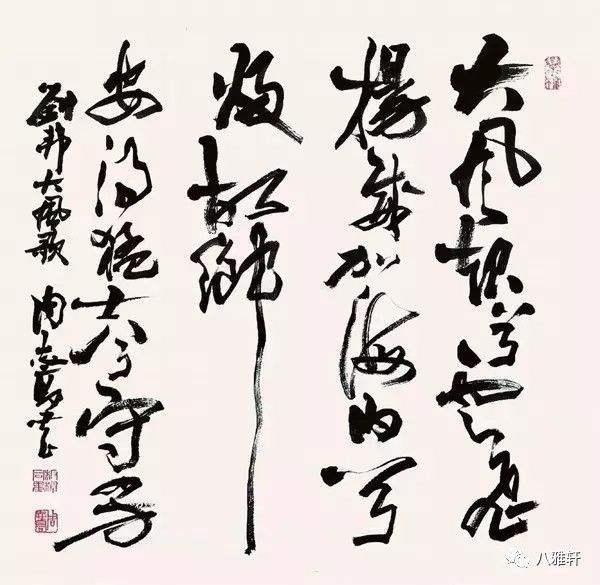 大風起兮雲飛
揚威加海内兮
歸故鄉
安得猛士兮守四方
劉邦大風歌 周志高書
八雅轩